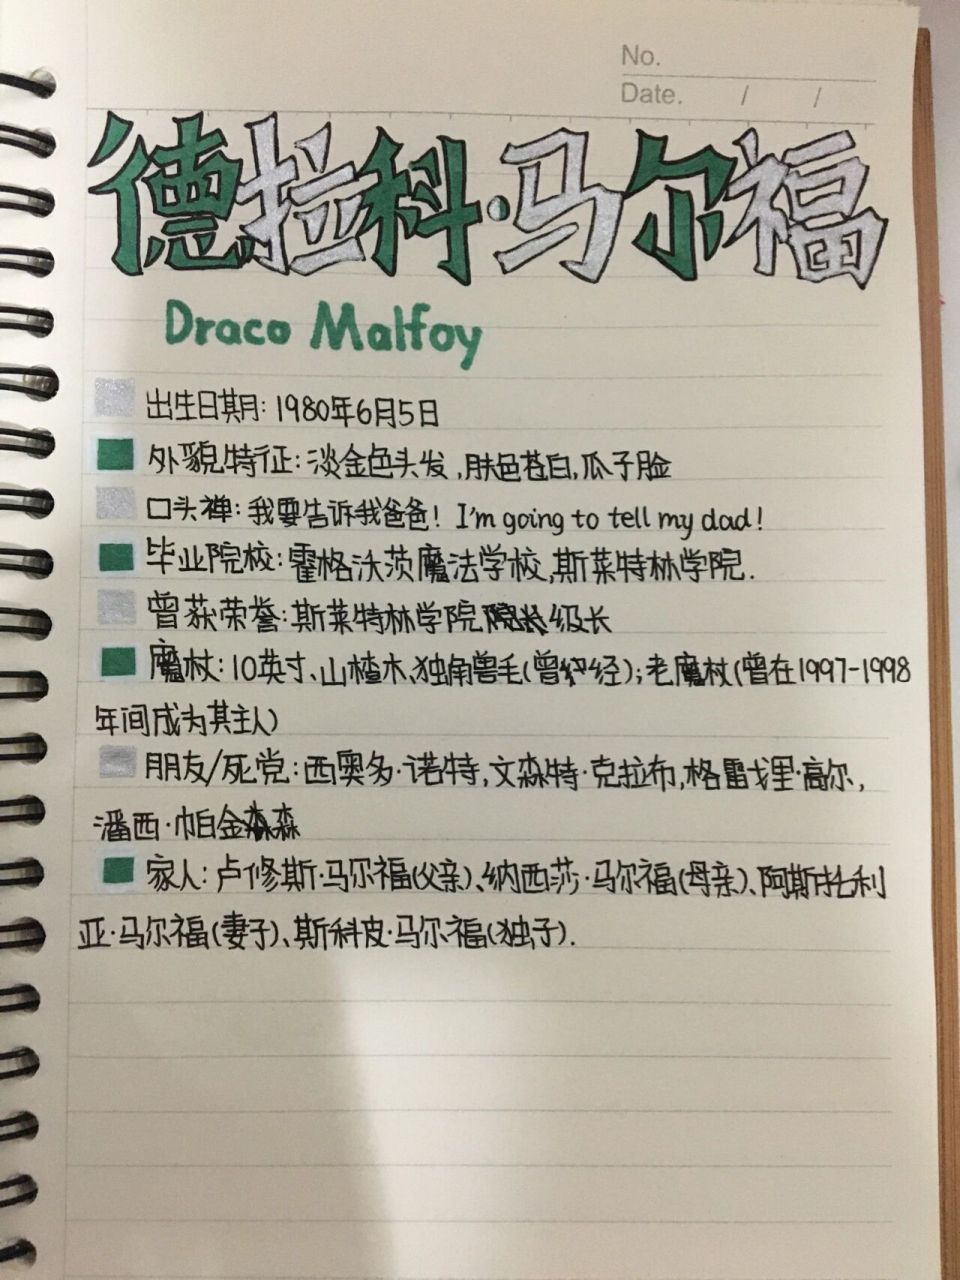 No.
Date. / /
德拉科·马尔福
Draco Malfoy
出生日期: 1980年6月5日
外貌特征: 淡金色头发,肤色苍白,瓜子脸
口头禅: 我要告诉我爸爸! I'm going to tell my dad!
毕业院校: 霍格沃茨魔法学校,斯莱特林学院.
曾获荣誉: 斯莱特林学院级长
魔杖: 10英寸、山楂木、独角兽毛(曾经);老魔杖(曾在1997-1998
年间成为其主人)
朋友/死党: 西奥多·诺特,文森特·克拉布,格雷戈里·高尔,
潘西·帕金森
家人: 卢修斯·马尔福(父亲)、纳西莎·马尔福(母亲)、阿斯托利
亚·马尔福(妻子)、斯科皮·马尔福(独子).